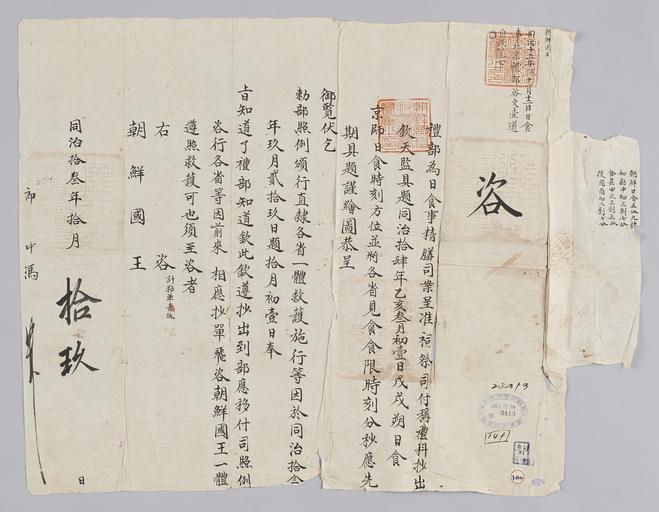 朝鮮日食五分九秒
咨
禮部為日食事精膳司案呈准祠祭司付稱禮科抄出
欽天監具題同治拾肆年乙亥叁月初壹日戊戌朔日食
京師日食時刻方位並將各省見食食限時刻分秒應先
期具題謹繪圖恭呈
御覽伏乞
勅部照例頒行直隸各省一體救護施行等因於同治拾叁
年玖月貳拾玖日題拾月初壹日奉
旨知道了禮部知道欽此欽遵抄出到部應移付司照例
咨行各省等因前來相應抄單飛咨朝鮮國王一體
遵照救護可也須至咨者
右咨
計粘單壹紙
朝鮮國王
同治拾叁年拾月拾玖日
郎中馮